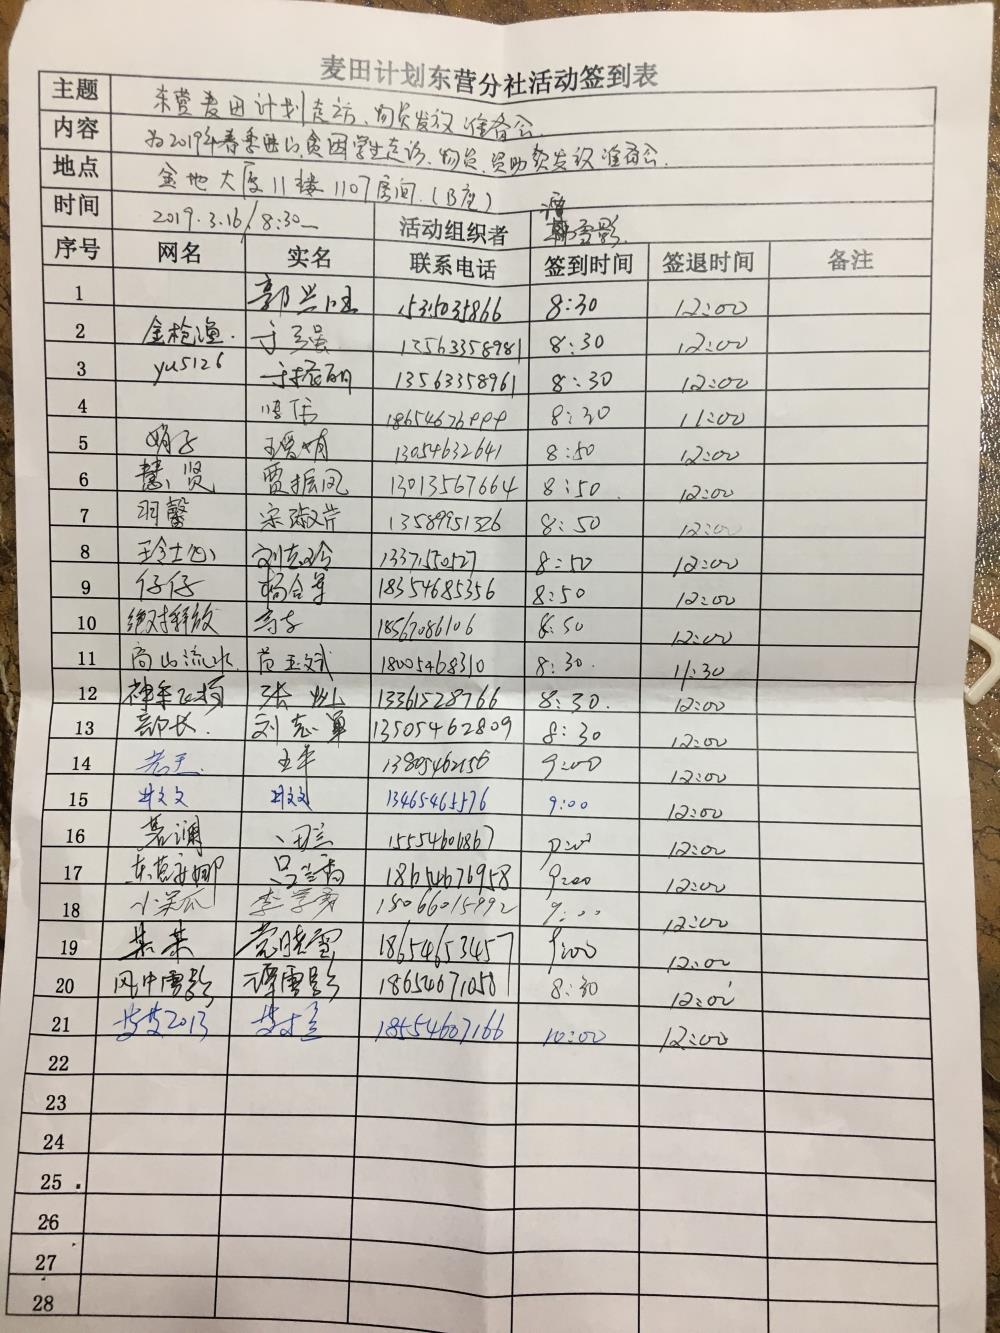 麦田计划东营分社活动签到表
主题 东营麦田计划走访、物资发放准备会
内容 为2019年春季 贫困学生走访、物资、资助款发放准备会.
地点 金地大厦11楼1107房间.(B座)
时间 2019.3.16/8:30— 活动组织者 谭雪影
序号 网名 实名 联系电话 签到时间 签退时间 备注
1 郭兴 8:30 12:00
2 金枪渔. 于 13563358981 8:30 12:00
3 yu5126 于振 13563358961 8:30 12:00
4 8:30 11:00
5 13054632641 8:50 12:00
6 慧贤 贾振凤 13013567664 8:50 12:00
7 羽馨 宋淑芹 13589951326 8:50 12:00
8 刘志玲 13371550527 8:50 12:00
9 仔仔 杨合军 18354685356 8:50 12:00
10 绝对释放 18567086106 8:50 12:00
11 高山流水. 黄玉斌 18005468310 8:30. 11:30
12 张 13361528766 8:30. 12:00
13 部长. 刘志军 13505462809 8:30 12:00
14 老王. 王平 13805462156 9:00 12:00
15 13465465576 9:00 12:00
16 慕澜 15554601867 9:00 12:00
17 东营安娜 吕兰香 18654676958 9:00 12:00
18 小呆瓜 李学勇 15066015992 9:00 12:00
19 某某 党晓雪 18654653457 9:00 12:00
20 风中雪影 谭雪影 8:30 12:00
21 18554607166 10:00 12:00
22
23
24
25
26
27
28